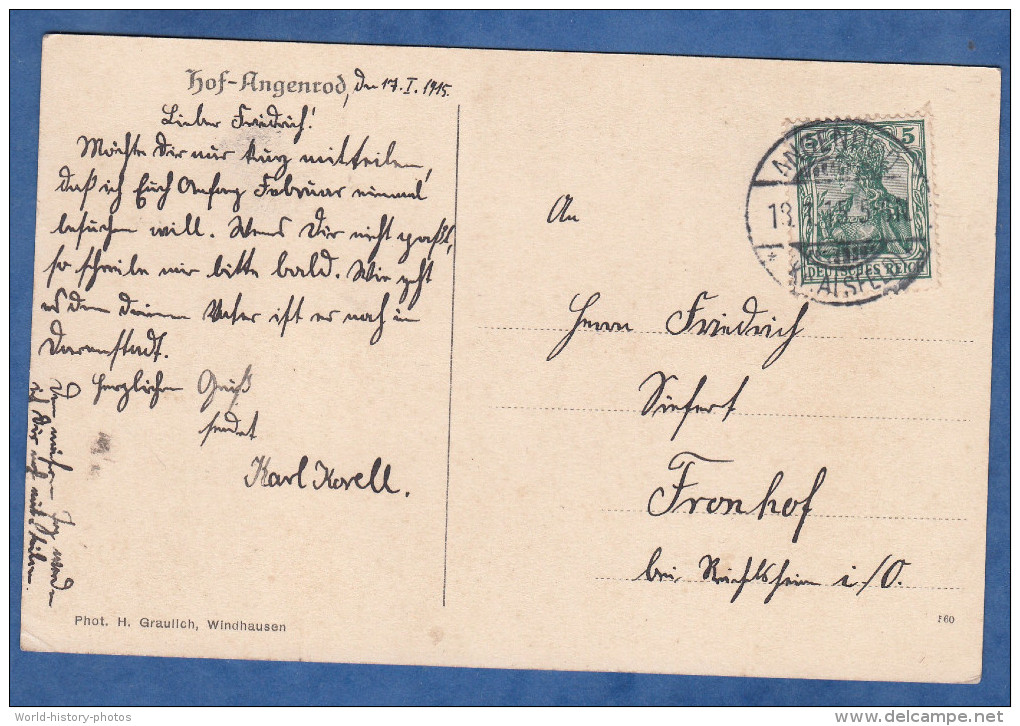 Hof-Angenrod, den 17. I. 1915.
Lieber Friedrich!
Möchte Dir nur kurz mitteilen,
daß ich Euch Anfang Februar einmal
besuchen will. Wens Dir nicht paßt,
so schreibe mir bitte bald. Wie geht
es dem deinen Vater ist er noch in
Darmstadt.
Herzlichen Gruß
sendet
Karl Korell.
Den nähern Tag werde
ich Dir noch mitteilen.
Phot. H. Graulich, Windhausen
ANGENROD
5
DEUTSCHES REICH
An
Herrn Friedrich
Siefert
Fronhof
bei Reichlsheim i/O.
160
World-history-photos
www.delcampe.net